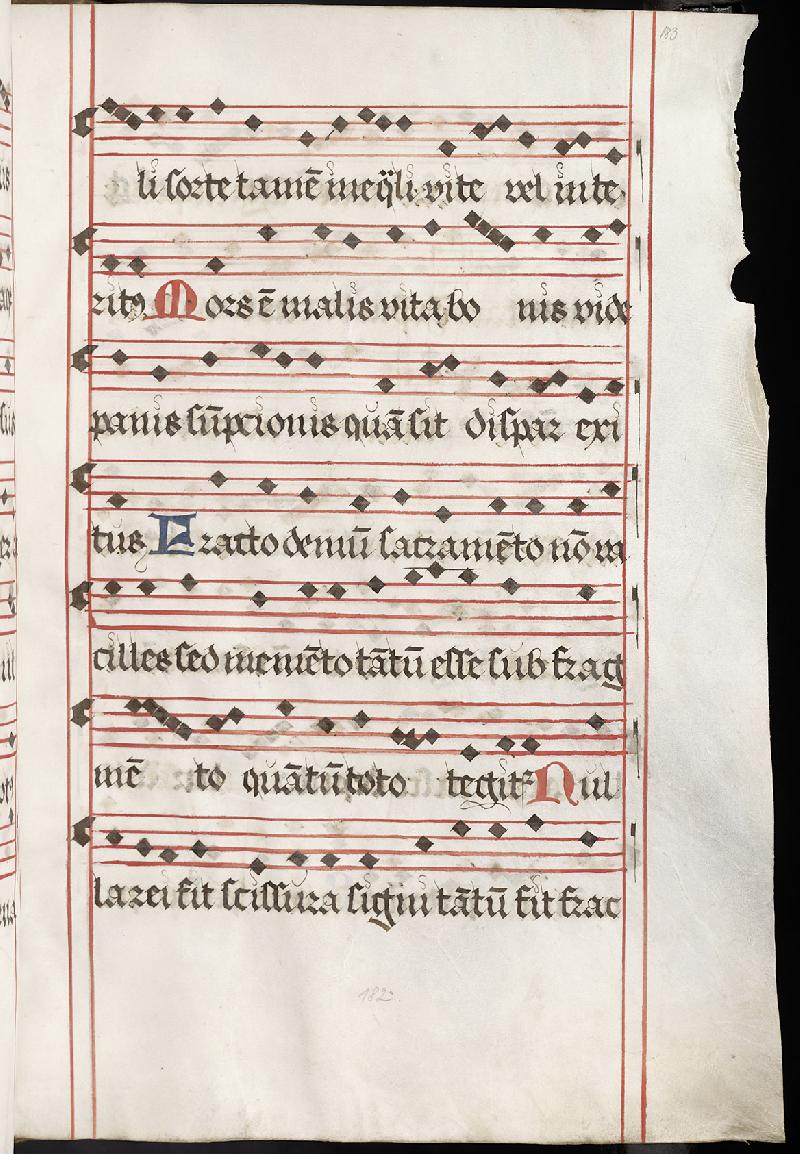 183
li sorte tamē ineq̈li vite vel inte
ritꝰ Mors ē malis vita bo nis vide
paris sūpcionis quā sit dispar exi
tus Fracto demū sacramēto nō va
cilles sed memēto tātū esse sub frag
mē to quātū toto tegitᷣ Nul
la rei fit scissura signi tātū fit frac
182